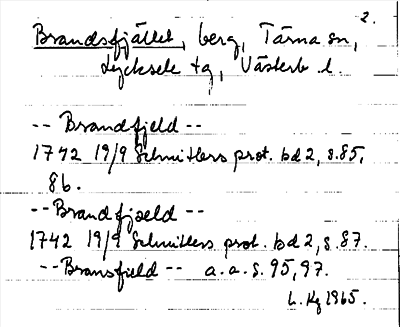 2.
Brandsfjället, berg, Tärna sn,
Lycksele tg, Västerb l.
-- Brandfjeld --
1742 19/9 Schnitlers prot. bd 2, s. 85,
86.
-- Brandfjæld --
1742 19/9 Schnitlers prot. bd 2, s. 87.
-- Bransfield -- a.a. s. 95, 97.
L. Hg 1965.